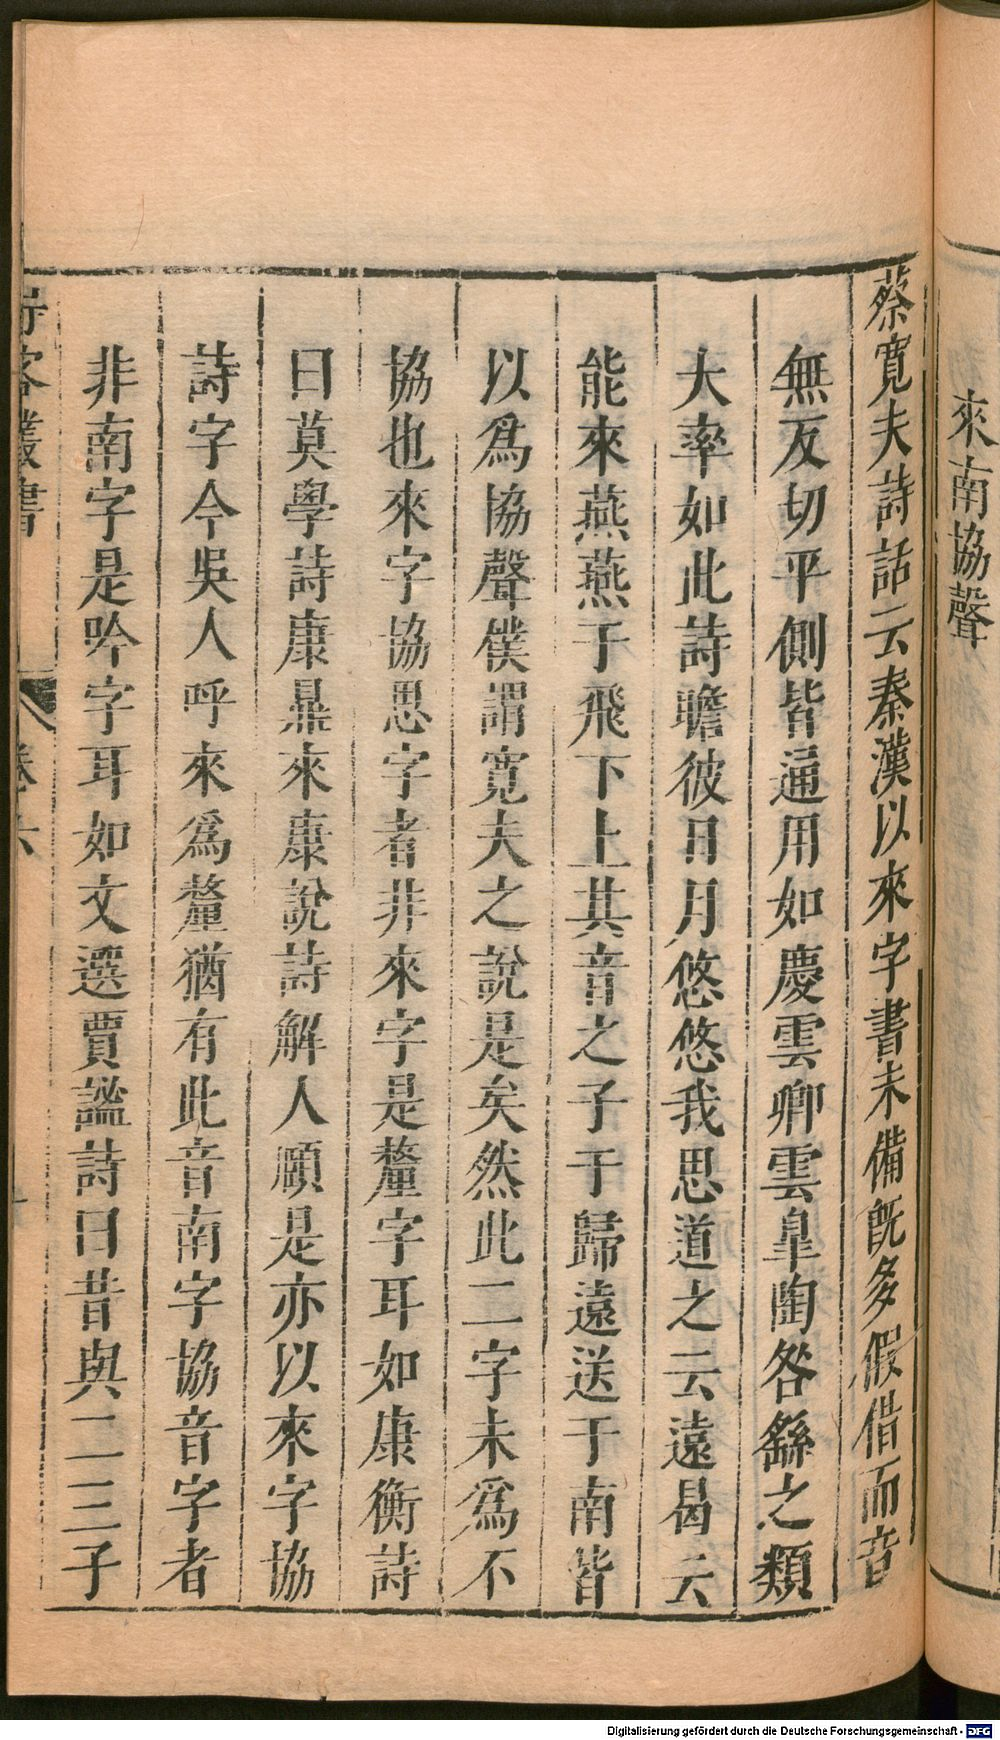 來南協聲
蔡寬夫詩話云秦漢以來字書未備旣多假借而音
無反切平側皆通用如慶雲卿雲皐陶咎繇之類
大率如此詩瞻彼日月悠悠我思道之云遠曷云
能來燕燕于飛下上其音之子于歸遠送于南皆
以爲協聲僕謂寬夫之說是矣然此二字未爲不
協也來字協思字者非來字是釐字耳如康衡詩
曰莫學詩康鼎來康說詩解人頤是亦以來字協
詩字今吳人呼來爲釐猶有此音南字協音字者
非南字是吟字耳如文選賈謐詩曰昔與二三子
客叢書
卷六
Digitalisierung gefördert durch die Deutsche Forschungsgemeinschaft - DFG